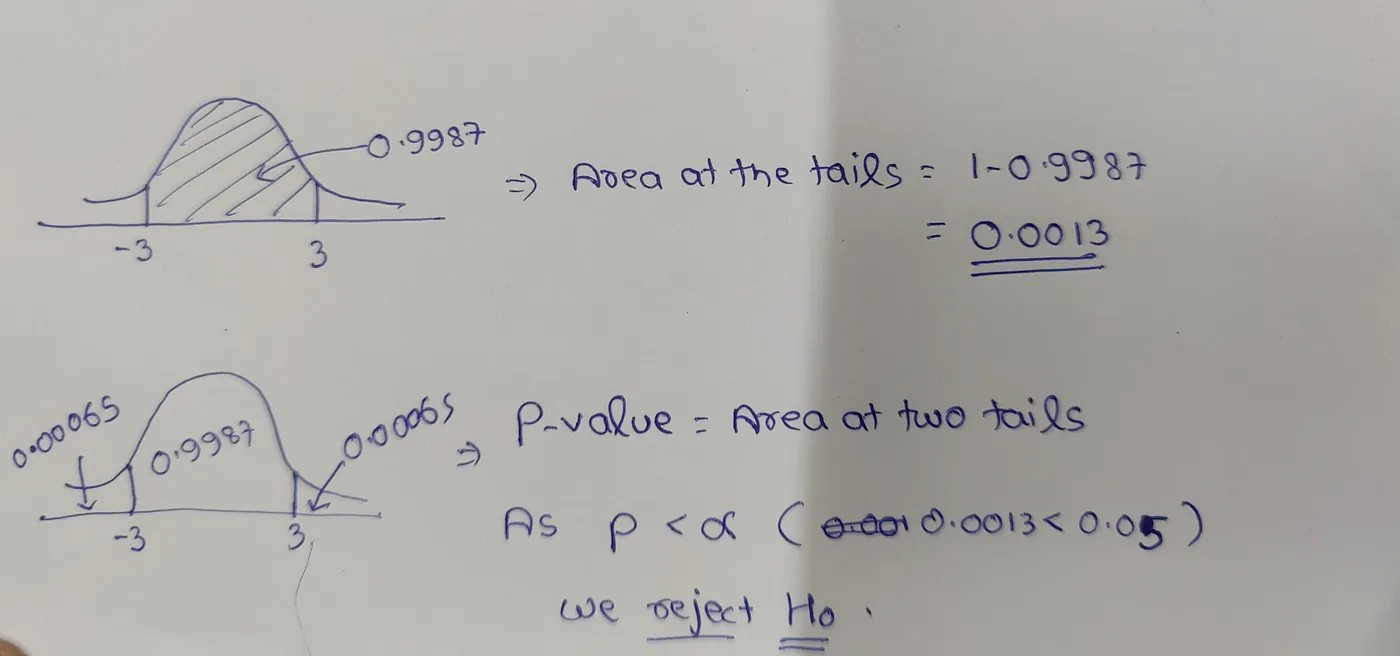 0.9987
⇒ Area at the tails = 1-0.9987
-3 3
= 0.0013
0.00065 0.9987 0.00065
⇒ P-value = Area at two tails
-3 3
As p < α ( 0.001 0.0013 < 0.05 )
we reject Ho .